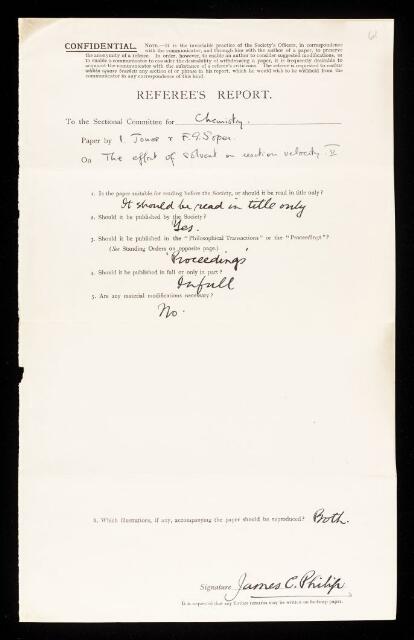 61
CONFIDENTIAL. NOTE.—It is the invariable practice of the Society's Officers, in correspondence
with the communicator, and through him with the author of a paper, to preserve
the anonymity of a referee. In order, however, to enable an author to consider suggested modifications, or
to enable a communicator to consider the desirability of withdrawing a paper, it is frequently desirable to
acquaint the communicator with the substance of a referee's criticisms. The referee is requested to enclose
within square brackets any section of or phrase in his report, which he would wish to be withheld from the
communicator in any correspondence of this kind.
REFEREE'S REPORT.
To the Sectional Committee for Chemistry.
Paper by I. Jones & F. G. Soper.
On The effect of solvent on reaction velocity. II
1. Is the paper suitable for reading before the Society, or should it be read in title only?
It should be read in title only
2. Should it be published by the Society?
Yes.
3. Should it be published in the "Philosophical Transactions" or the "Proceedings"?
(See Standing Orders on opposite page.)
'Proceedings'
4. Should it be published in full or only in part?
In full
5. Are any material modifications necessary?
No.
6. Which illustrations, if any, accompanying the paper should be reproduced? Both.
Signature James C. Philip
It is requested that any further remarks may be written on